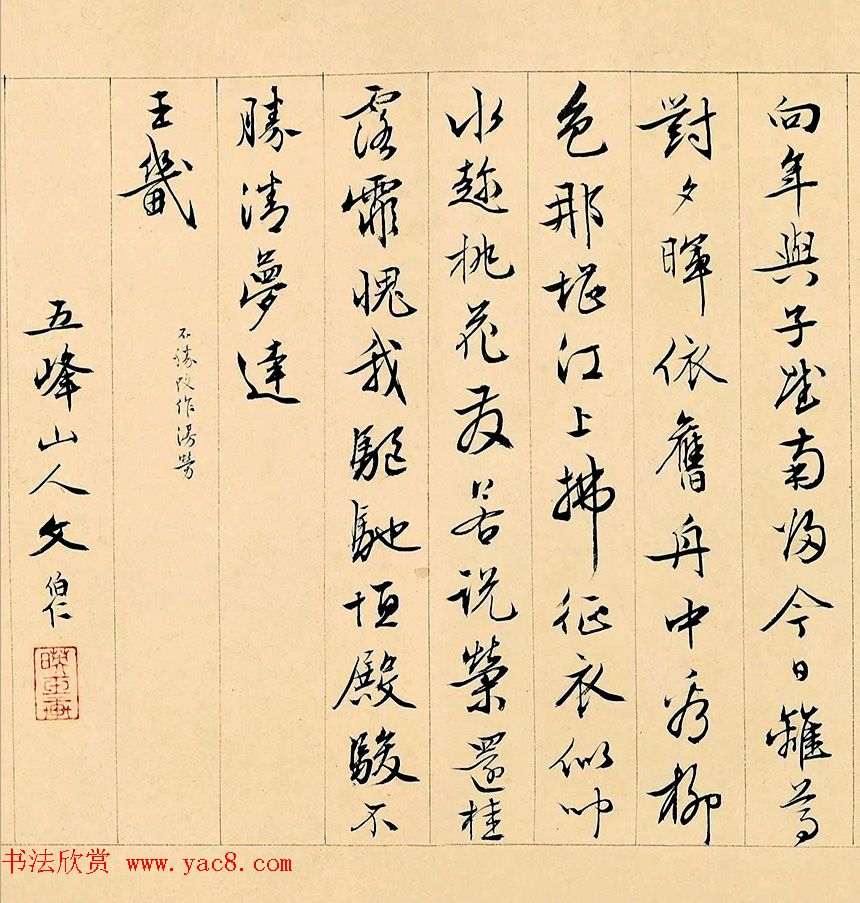 向年與子望南歸今日離尊
對夕暉依舊舟中看柳
色那堪江上拂征衣似
水趁桃花發若說榮還桂
露霏愧我驅馳恒殿駿不
勝清夢達
王畿
不勝改作漫勞
五峰山人文伯仁
书法欣赏 www.yac8.com